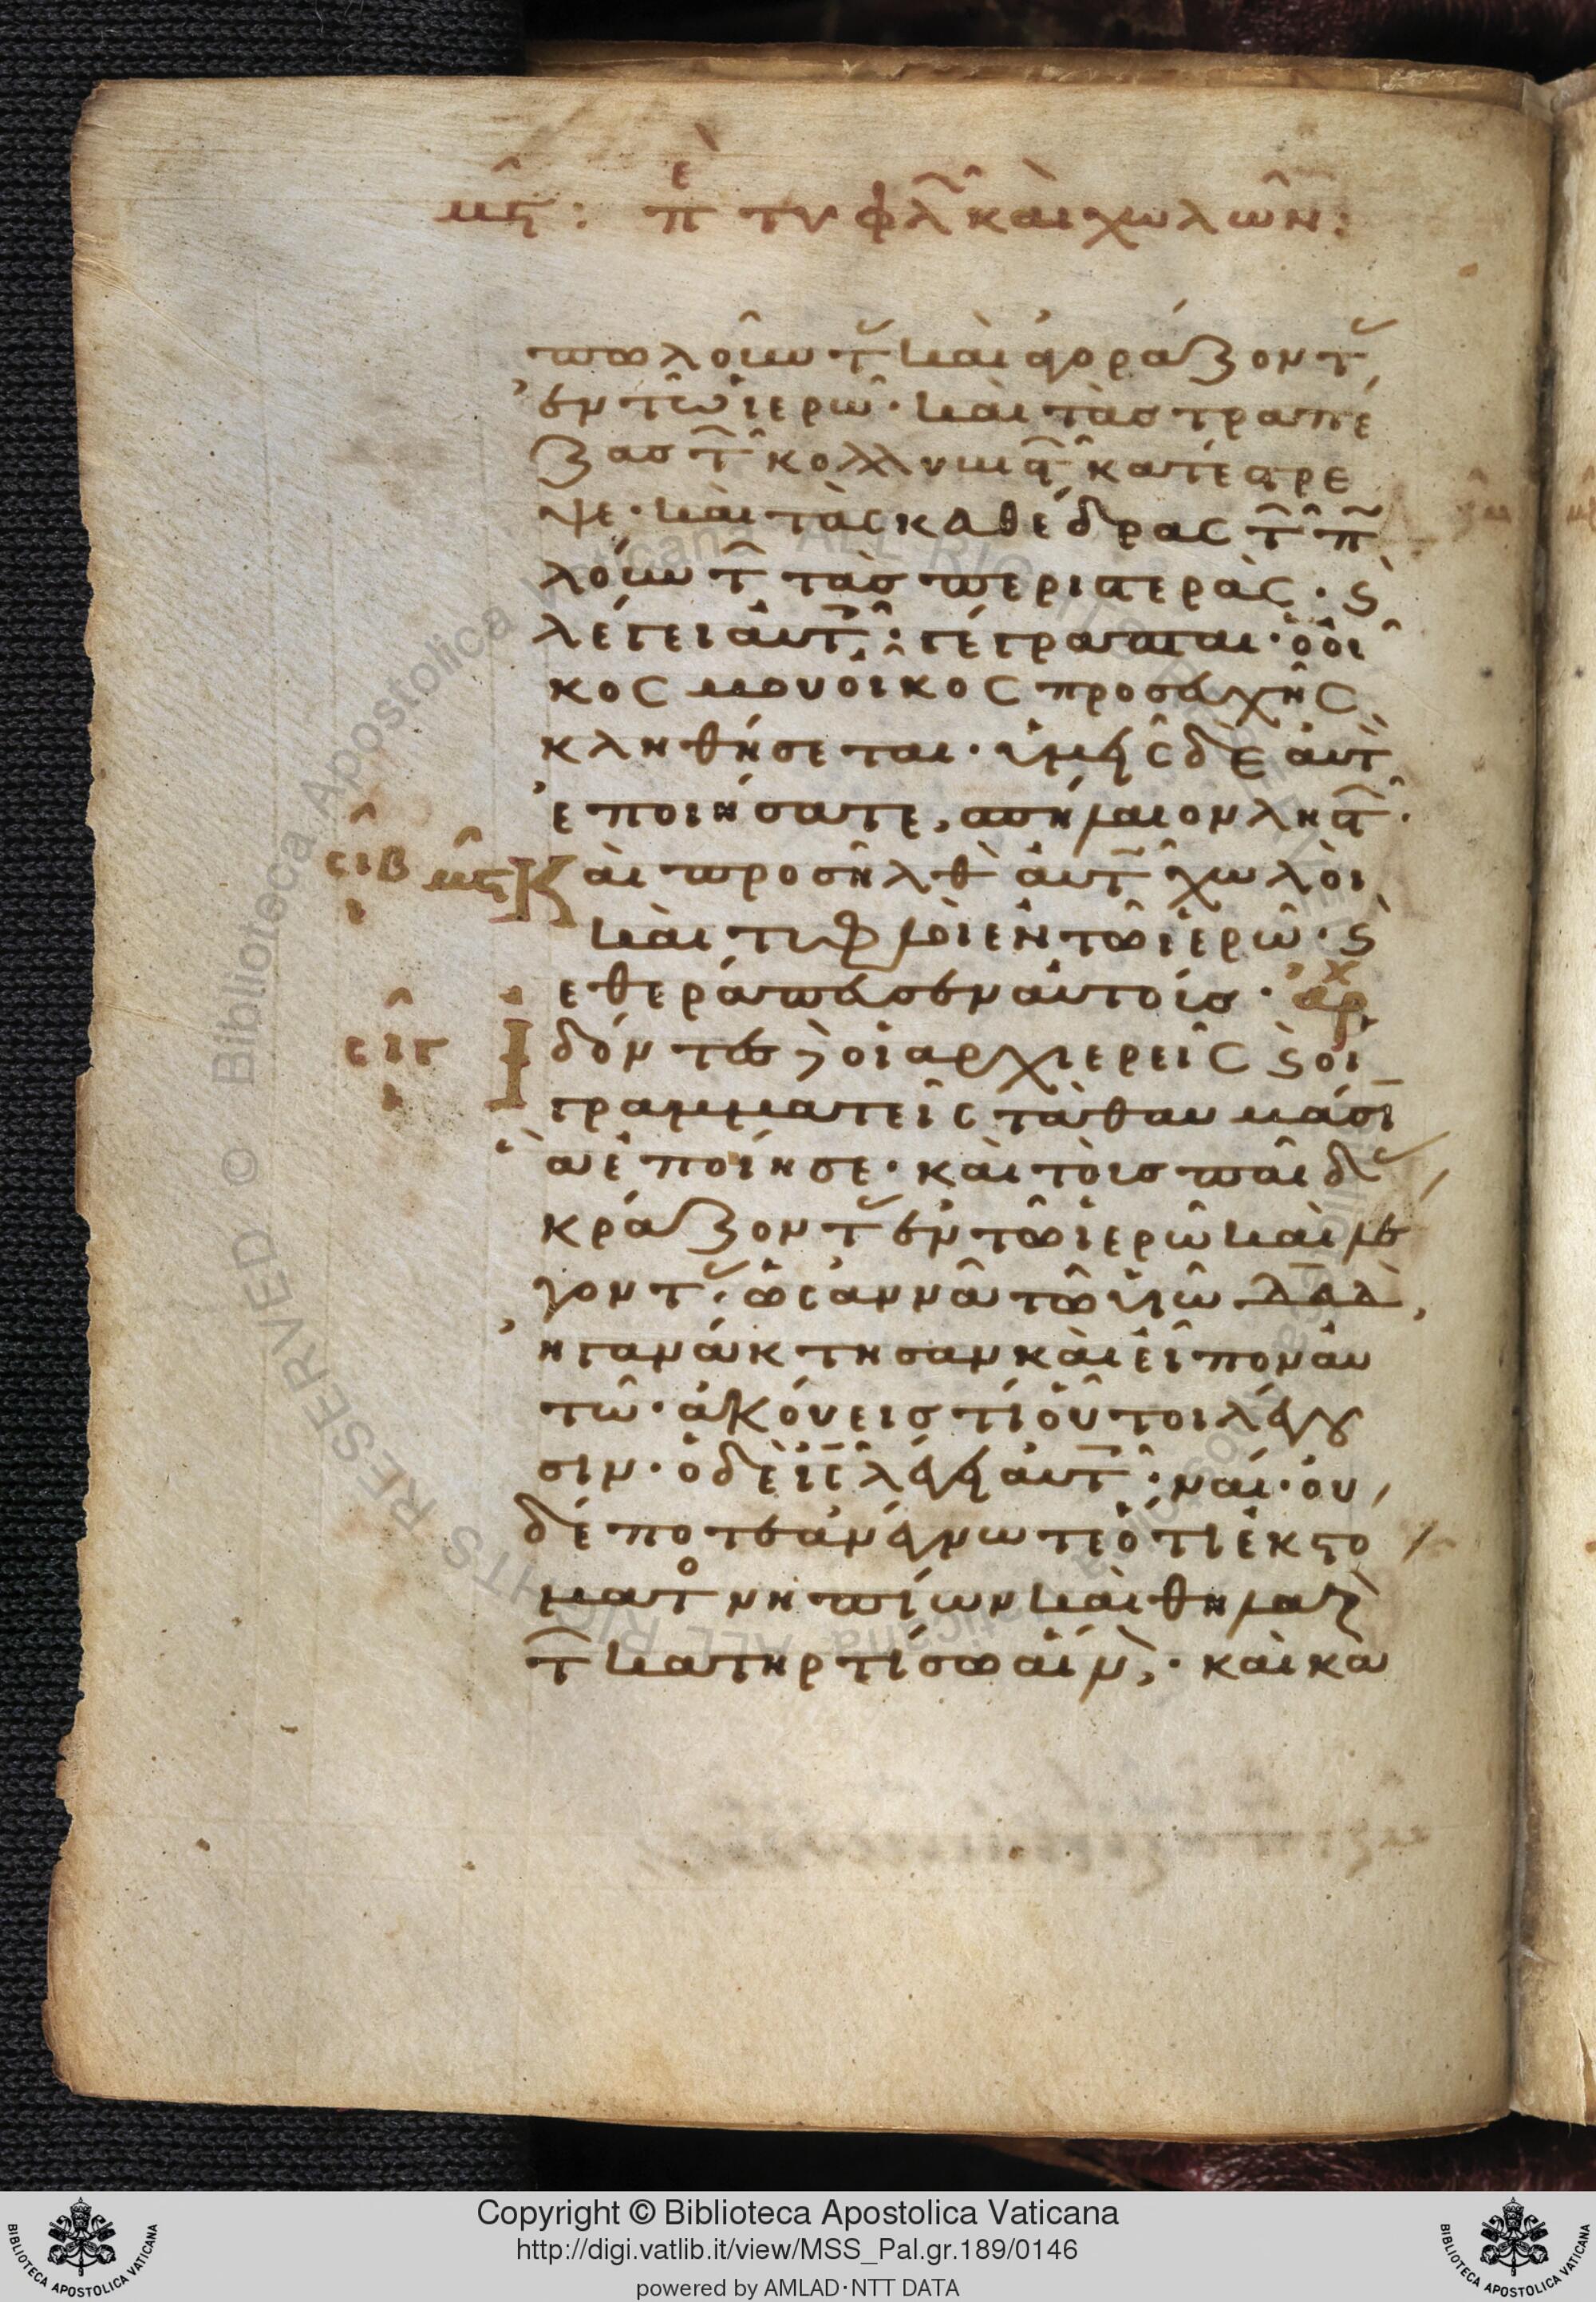 μϛ: πε τυφλ καὶ χωλῶν:
πωλοῦντ καὶ ἀγοράζοντ
ἐν τῶ ἱερῶ· καὶ τὰς τραπέ
ζας τ κολλυβιστ κατέστρε
ψε· καὶ τὰς καθέδρας τ π
λούντ τὰς περιστερὰς· ϛ
λέγει αὐτ· γέγραπται· ὁ οἶ
κος μου οἶκος προσευχῆς
κληθήσεται· ὑμεῖς δὲ αὐτ
ἐποιήσατε, σπήλαιον ληστ·
σιβ μϛ Καὶ προσῆλθ αὐτ χωλοὶ
καὶ τυφλοὶ ἐν τῶ ἱερῶ· ϛ
ἐθεράπευσεν αὐτοὺς· ἀρχ
σιγ Ἰδόντες οἱ ἀρχιερεῖς ϛ οἱ
γραμματεῖς τὰ θαυμάσι
ἃ ἐποίησε· καὶ τοὺς παῖδ
κράζοντ ἐν τῶ ἱερῶ καὶ λέ
γοντ· ὡσαννὰ τῶ υἱῶ δαδ,
ἠγανάκτησαν καὶ εἶπον αὐ
τῶ· ἀκούεις τί οὗτοι λέγου
σιν· ὁ δὲ ἰς λέγει αὐτ· ναί· οὐ
δέποτε ἀνέγνωτε ὅτι ἐκ στό
ματο νηπίων καὶ θηλαζ
τ κατηρτίσω αἶν· καὶ κα
Copyright © Biblioteca Apostolica Vaticana
http://digi.vatlib.it/view/MSS_Pal.gr.189/0146
powered by AMLAD·NTT DATA